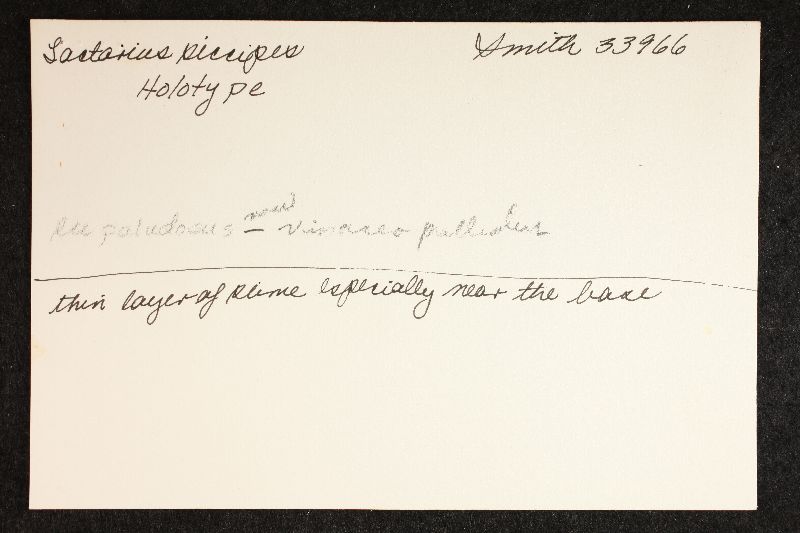 Lactarius siccipes Smith 33966
Holotype
see paludosus — vinaceo pallidus
thin layer of slime especially near the base